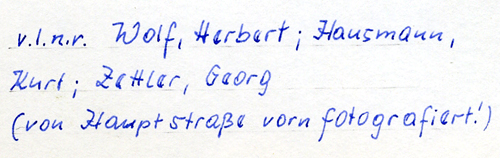 v.l.n.r. Wolf, Herbert; Hausmann,
Kurt; Zettler, Georg
(von Hauptstraße vorn fotografiert!)